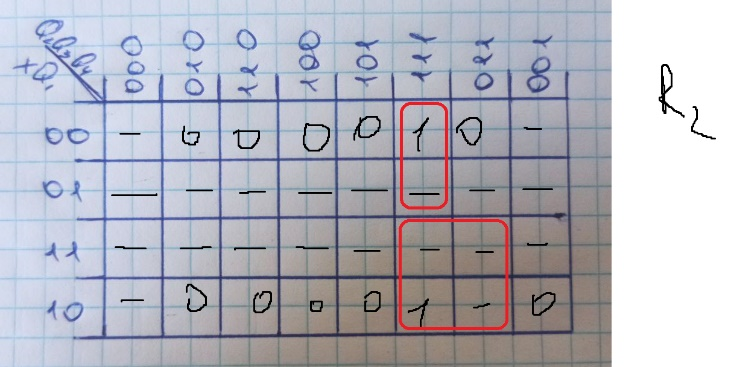 Q₂Q₃Q₄
xQ₁
000 010 110 100 101 111 011 001
00 - 0 0 0 0 1 0 -
01 - - - - - - - -
11 - - - - - - - -
10 - 0 0 0 0 1 - 0
R₂